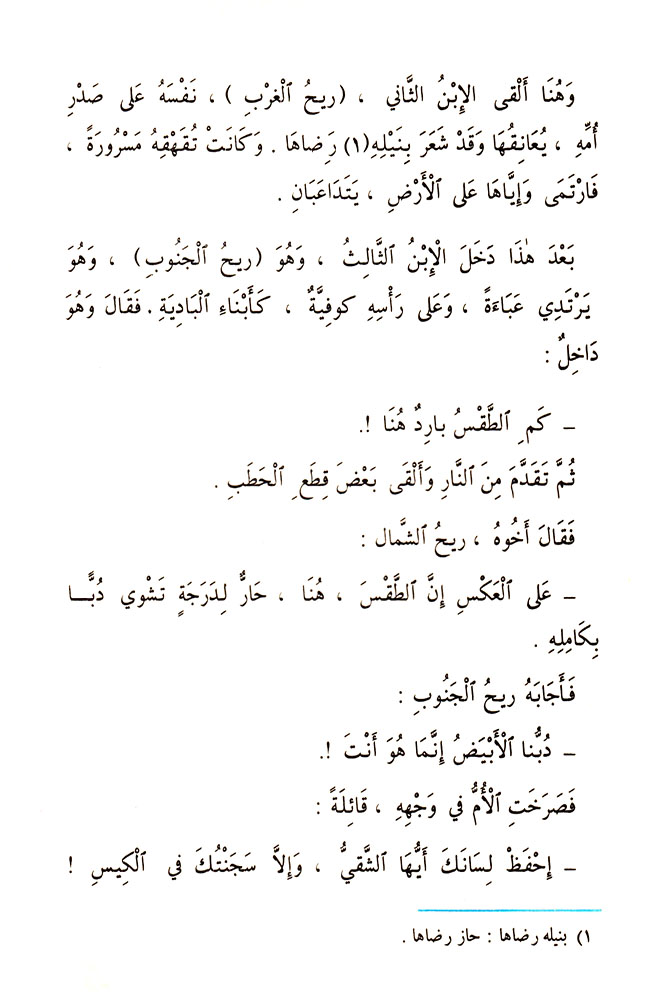 وَهُنَا أَلْقى الإِبْنُ الثَّاني ، (ريحُ ٱلْغرْبِ ) ، نَفْسَهُ عَلى صَدْرِ
أُمِّهِ ، يُعَانِقُهَا وَقَدْ شَعَرَ بِنَيْلِهِ(١) رِضاهَا . وَكَانَتْ تُقَهْقِهُ مَسْرُورَةً ،
فَارْتَمَى وَإِيَّاهَا عَلى ٱلْأَرْضِ ، يَتَدَاعَبَانِ .
بَعْدَ هٰذَا دَخَلَ الْإِبْنُ ٱلثَّالِثُ ، وَهُوَ (ريحُ ٱلْجَنُوبِ) ، وَهُوَ
يَرْتَدِي عَبَاءَةً ، وَعَلى رَأْسِهِ كوفِيَّةٌ ، كَأَبْنَاءِ ٱلْبَادِيَةِ . فَقَالَ وَهُوَ
دَاخِلٌ :
– كَمِ ٱلطَّقْسُ بارِدٌ هُنَا !.
ثُمَّ تَقَدَّمَ مِنَ ٱلنَّارِ وَأَلْقَى بَعْضَ قِطَعِ ٱلْحَطَبِ .
فَقَالَ أَخُوهُ ، ريحُ ٱلشَّمال :
– عَلى ٱلْعَكْسِ إِنَّ ٱلطَّقْسَ ، هُنَا ، حَارٌّ لِدَرَجَةٍ تَشْوي دُبًّا
بِكَامِلِهِ .
فَأَجَابَهُ ريحُ ٱلْجَنُوبِ :
– دُبُّنا ٱلْأَبْيَضُ إِنَّمَا هُوَ أَنْتَ !.
فَصَرَخَتِ ٱلْأُمُّ في وَجْهِهِ ، قَائِلَةً :
– إِحْفَظْ لِسَانَكَ أَيُّهَا ٱلشَّقيُّ ، وَإِلاَّ سَجَنْتُكَ في ٱلْكِيسِ !
١) بنيله رضاها : حاز رضاها .